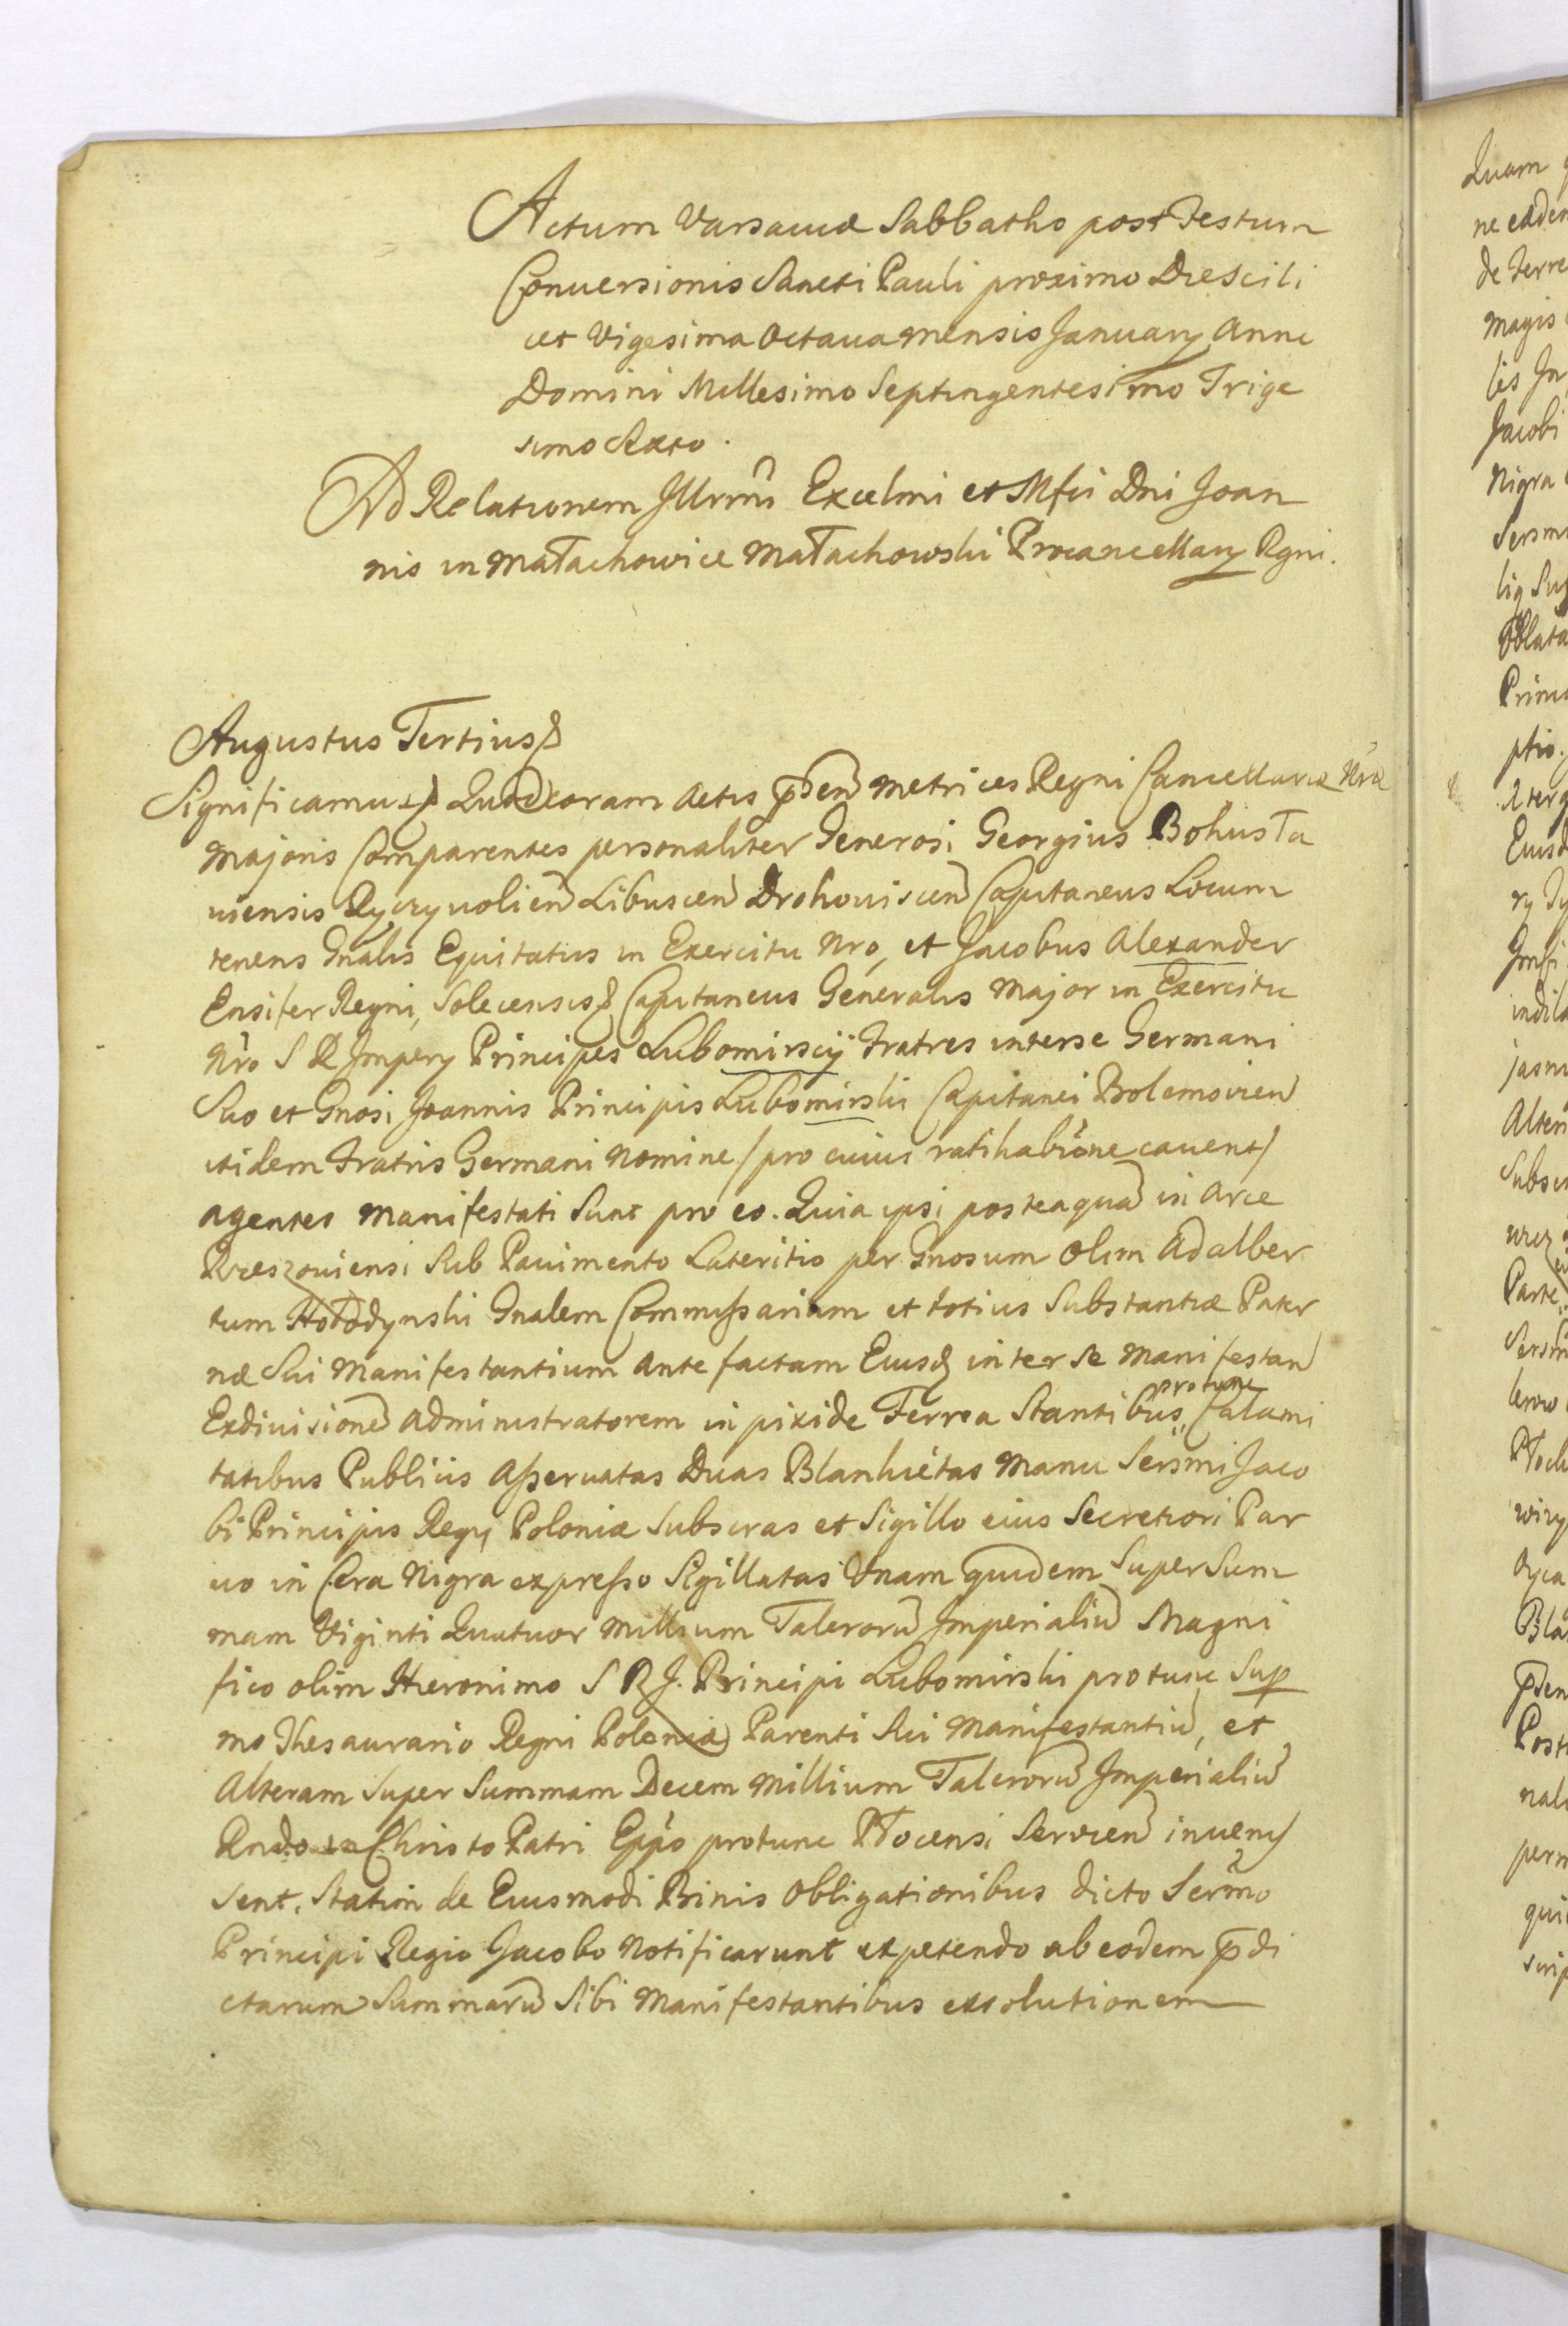 Actum Varsaviæ Sabbatho post Festum
Conversionis Sancti Pauli proximo Die Scili
cet Vigesima Octava mensis January Anno
Domini Millesimo Septingentesimo Trige
simo Sexto.
Ad Relationem Illrmi Excelmi et Mfci Dni Joan
nis in Małachowice Małachowski Procancellary Rgni.
Augustus Tertius
Significamus Quod coram Actis pñsen Metrices Regni Cancellariæ Nræ
Majoris Comparentes personaliter Generosi Georgius Bohusla
viensis Ryczyvolien Libuscen Drohoviscen Capitaneus Locum
tenens Gnalis Equitatus in Exercitu Nro, et Jacobus Alexander
Ensifer Regni, Solecensis Capitaneus Generalis Major in Exercitu
Nro S R Impery Principes Lubomirscÿ Fratres interse Germani
Suo et Gnosi Joannis Principis Lubomirski Capitanei Bolemovien
itidem Fratris Germani Nomine / pro cuius ratihabione cavent /
agentes manifestati Sunt pro eo. Quia ipsi posteaqua in Arce
Rzeszoviensi Sub Pavimento Lateritio per Gnosum olim Adalber
tum Hołodynski Gnalem Commissarium et totius Substantiæ Pater
næ Sui Manifestantium Ante factam Eiusd inter se Manifestan
Exdivisione Administratorem in pixide Ferrea Stantibus protunc Calami
tatibus Publicis Asservatas Duas Blankietas Manu Serssmi Jaco
bi Principis Regy Poloniæ Subscras et Sigillo eius Secretiori Par
vo in Cera Nigra expresso Sigillatas Unam quidem Super Sum
mam Viginti Quatuor Millium Taleroru Imperialiu Magni
fico olim Hieronimo S R J. Principi Lubomirski protunc Sup
mo Thesaurario Regni Poloniæ Parenti Sui Manifestantiu, et
Alteram Super Summam Decem Millium Taleroru Imperialiu
Rndo in Christo Patri Eppo protunc Płocensi Servien inveni
sent. Statim de Eiusmodi Binis Obligationibus dicto Sermo
Principi Regio Jacobo Notificarunt expetendo ab eodem prædi
ctarum Summaru Sibi Manifestantibus exsolutionem